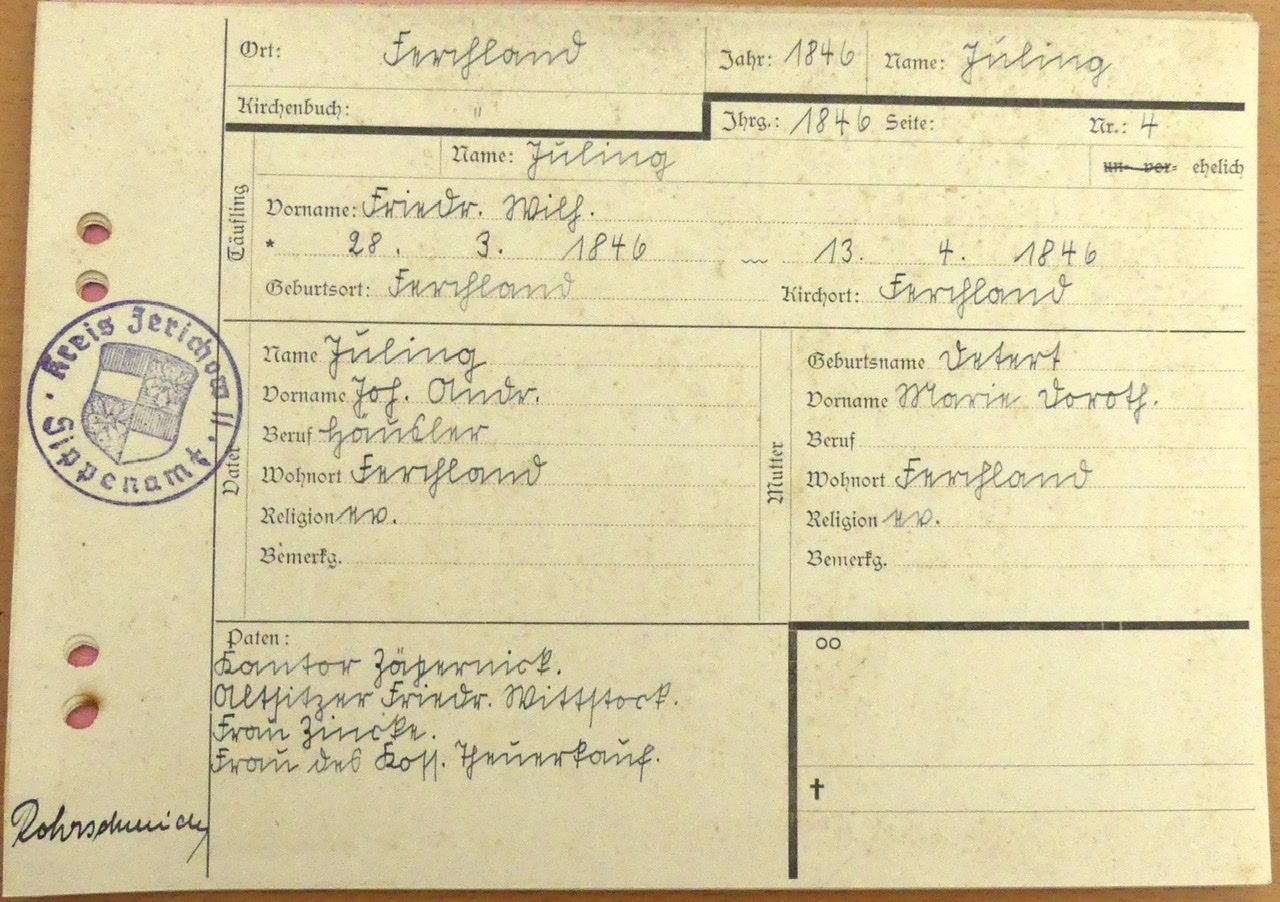 Ort: Ferchland Jahr: 1846 Name: Jüling
Kirchenbuch: " Jhrg.: 1846 Seite: Nr.: 4
Name: Jüling un- vor- ehelich
Täufling
Vorname: Friedr. Wilh.
* 28. 3. 1846 ~~~ 13. 4. 1846
Geburtsort: Ferchland Kirchort: Ferchland
Kreis Jerichow II.
Sippenamt
Vater
Name Jüling
Vorname Joh. Andr.
Beruf Häusler
Wohnort Ferchland
Religion ev.
Bemerkg.
Mutter
Geburtsname Detert
Vorname Marie Doroth.
Beruf
Wohnort Ferchland
Religion ev.
Bemerkg.
Paten:
Kantor Zäpernick.
Altsitzer Friedr. Wittstock.
Frau Zincke.
Frau des Koss. Theuerkauf.
oo
†